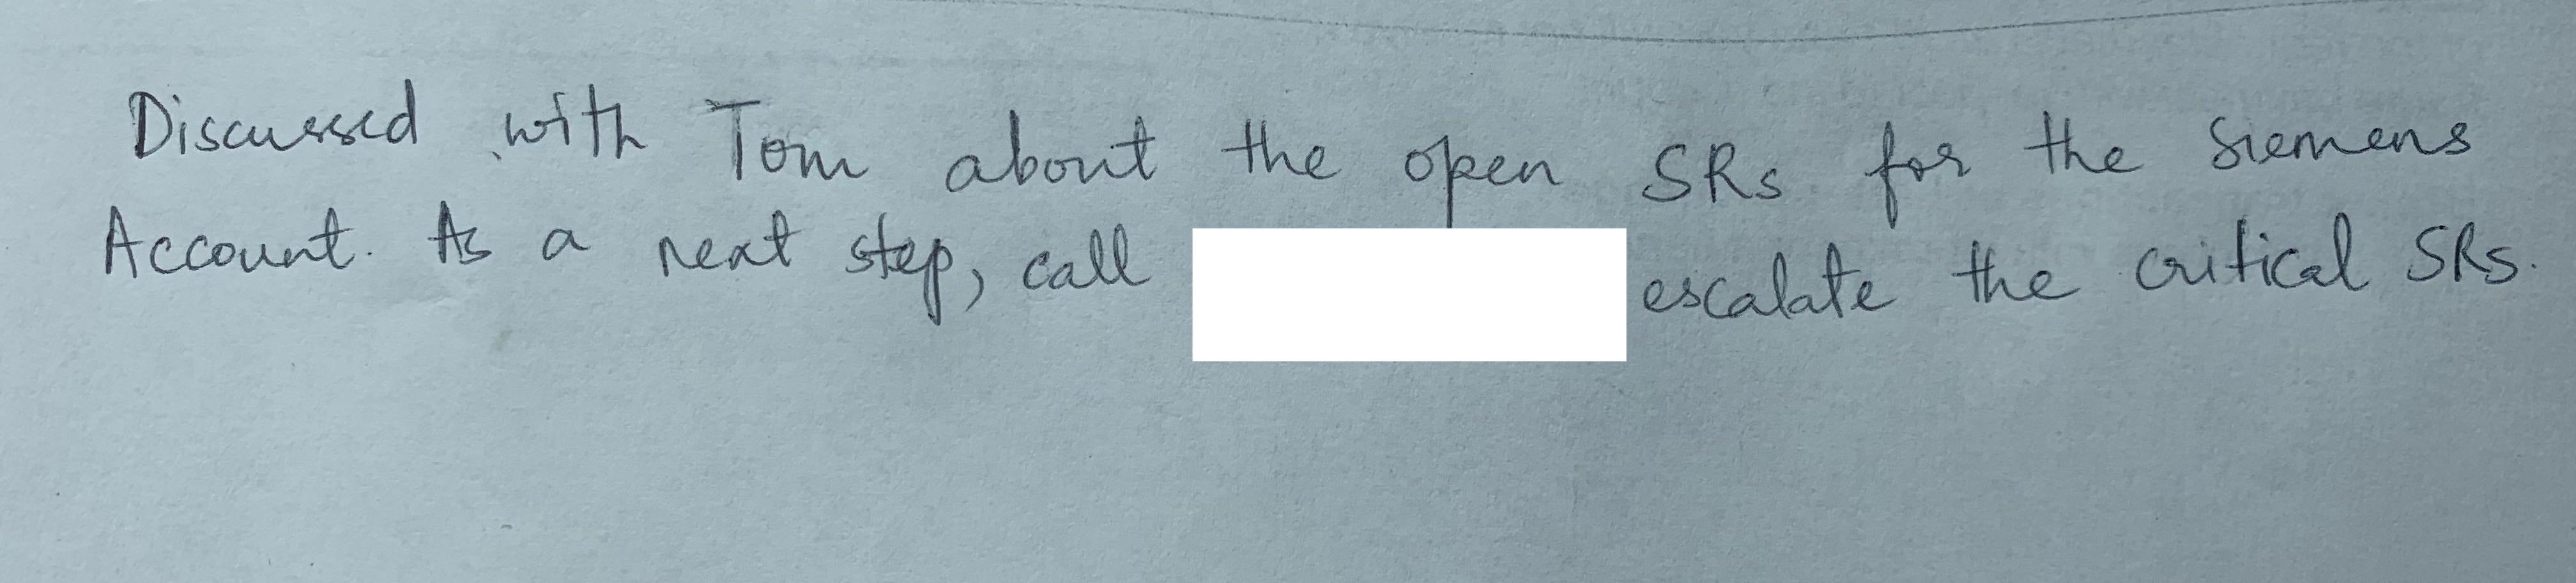 Discussed with Tom about the open SRs for the Siemens
Account. As a next step, call escalate the critical SRs.